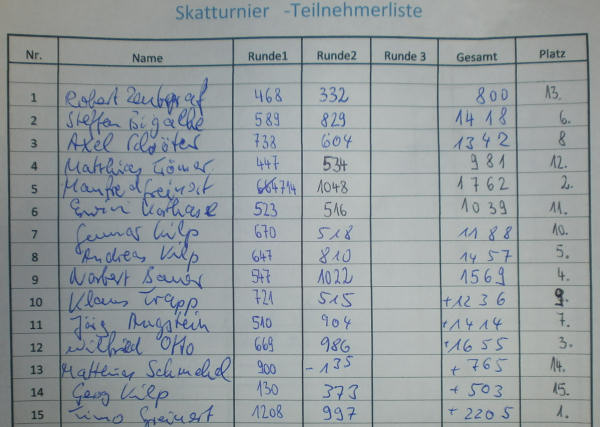 Skatturnier -Teilnehmerliste
Nr. Name Runde1 Runde2 Runde 3 Gesamt Platz
1 Robert 468 332 800 13.
2 Steffen 589 829 1418 6.
3 Axel Schröter 738 604 1342 8
4 Matthias 447 534 981 12.
5 Manfred Greinert 714 1048 1762 2.
6 Erwin 523 516 1039 11.
7 Gunnar Kulp 670 518 1188 10.
8 Andreas Kulp 647 810 1457 5.
9 Norbert Bauer 547 1022 1569 4.
10 Klaus Trapp 721 515 +1236 9.
11 Jörg Augstein 510 904 +1414 7.
12 Wilfried Otto 669 986 +1655 3.
13 Matthias Schmehel 900 -135 +765 14.
14 Georg Kulp 130 373 +503 15.
15 Timo Greinert 1208 997 +2205 1.